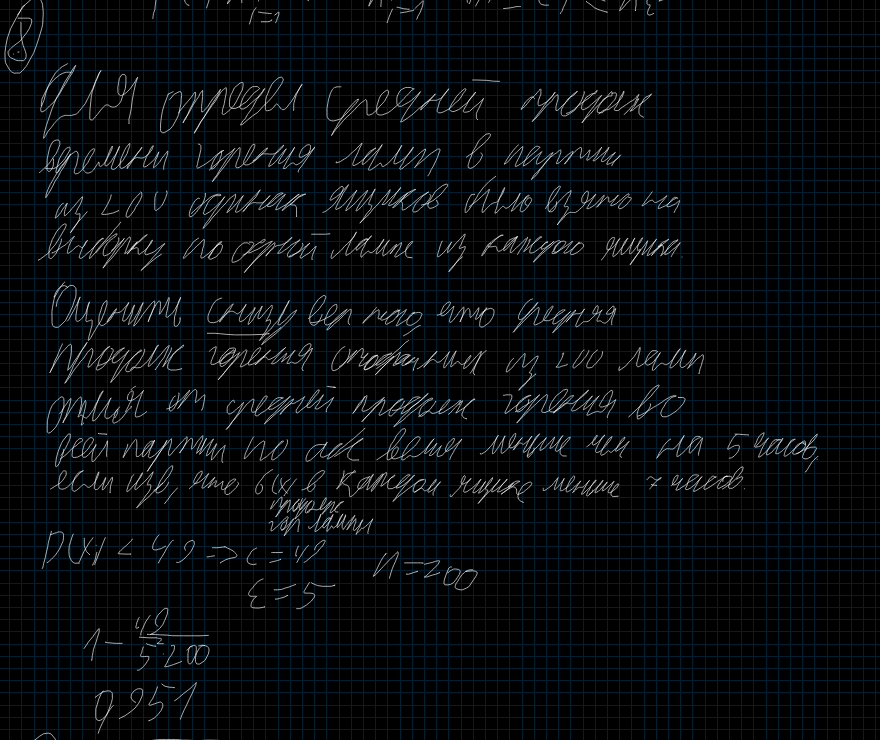 8
Для определ средней продолж
времени горения ламп в партии
из 200 одинак ящиков было взято на
выборку по одной лампе из каждого ящика
Оценить снизу вер того, что средняя
продолж горения отобранных из 200 ламп
отлич от средней продолж горения во
всей партии по абс велич меньше чем на 5 часов,
если изв, что б(x) в каждом ящике меньше 7 часов.
продолж
гор лампы
D(xi) < 49 => c = 49 n=200
ε = 5
1 - 49
5²·200
0,951